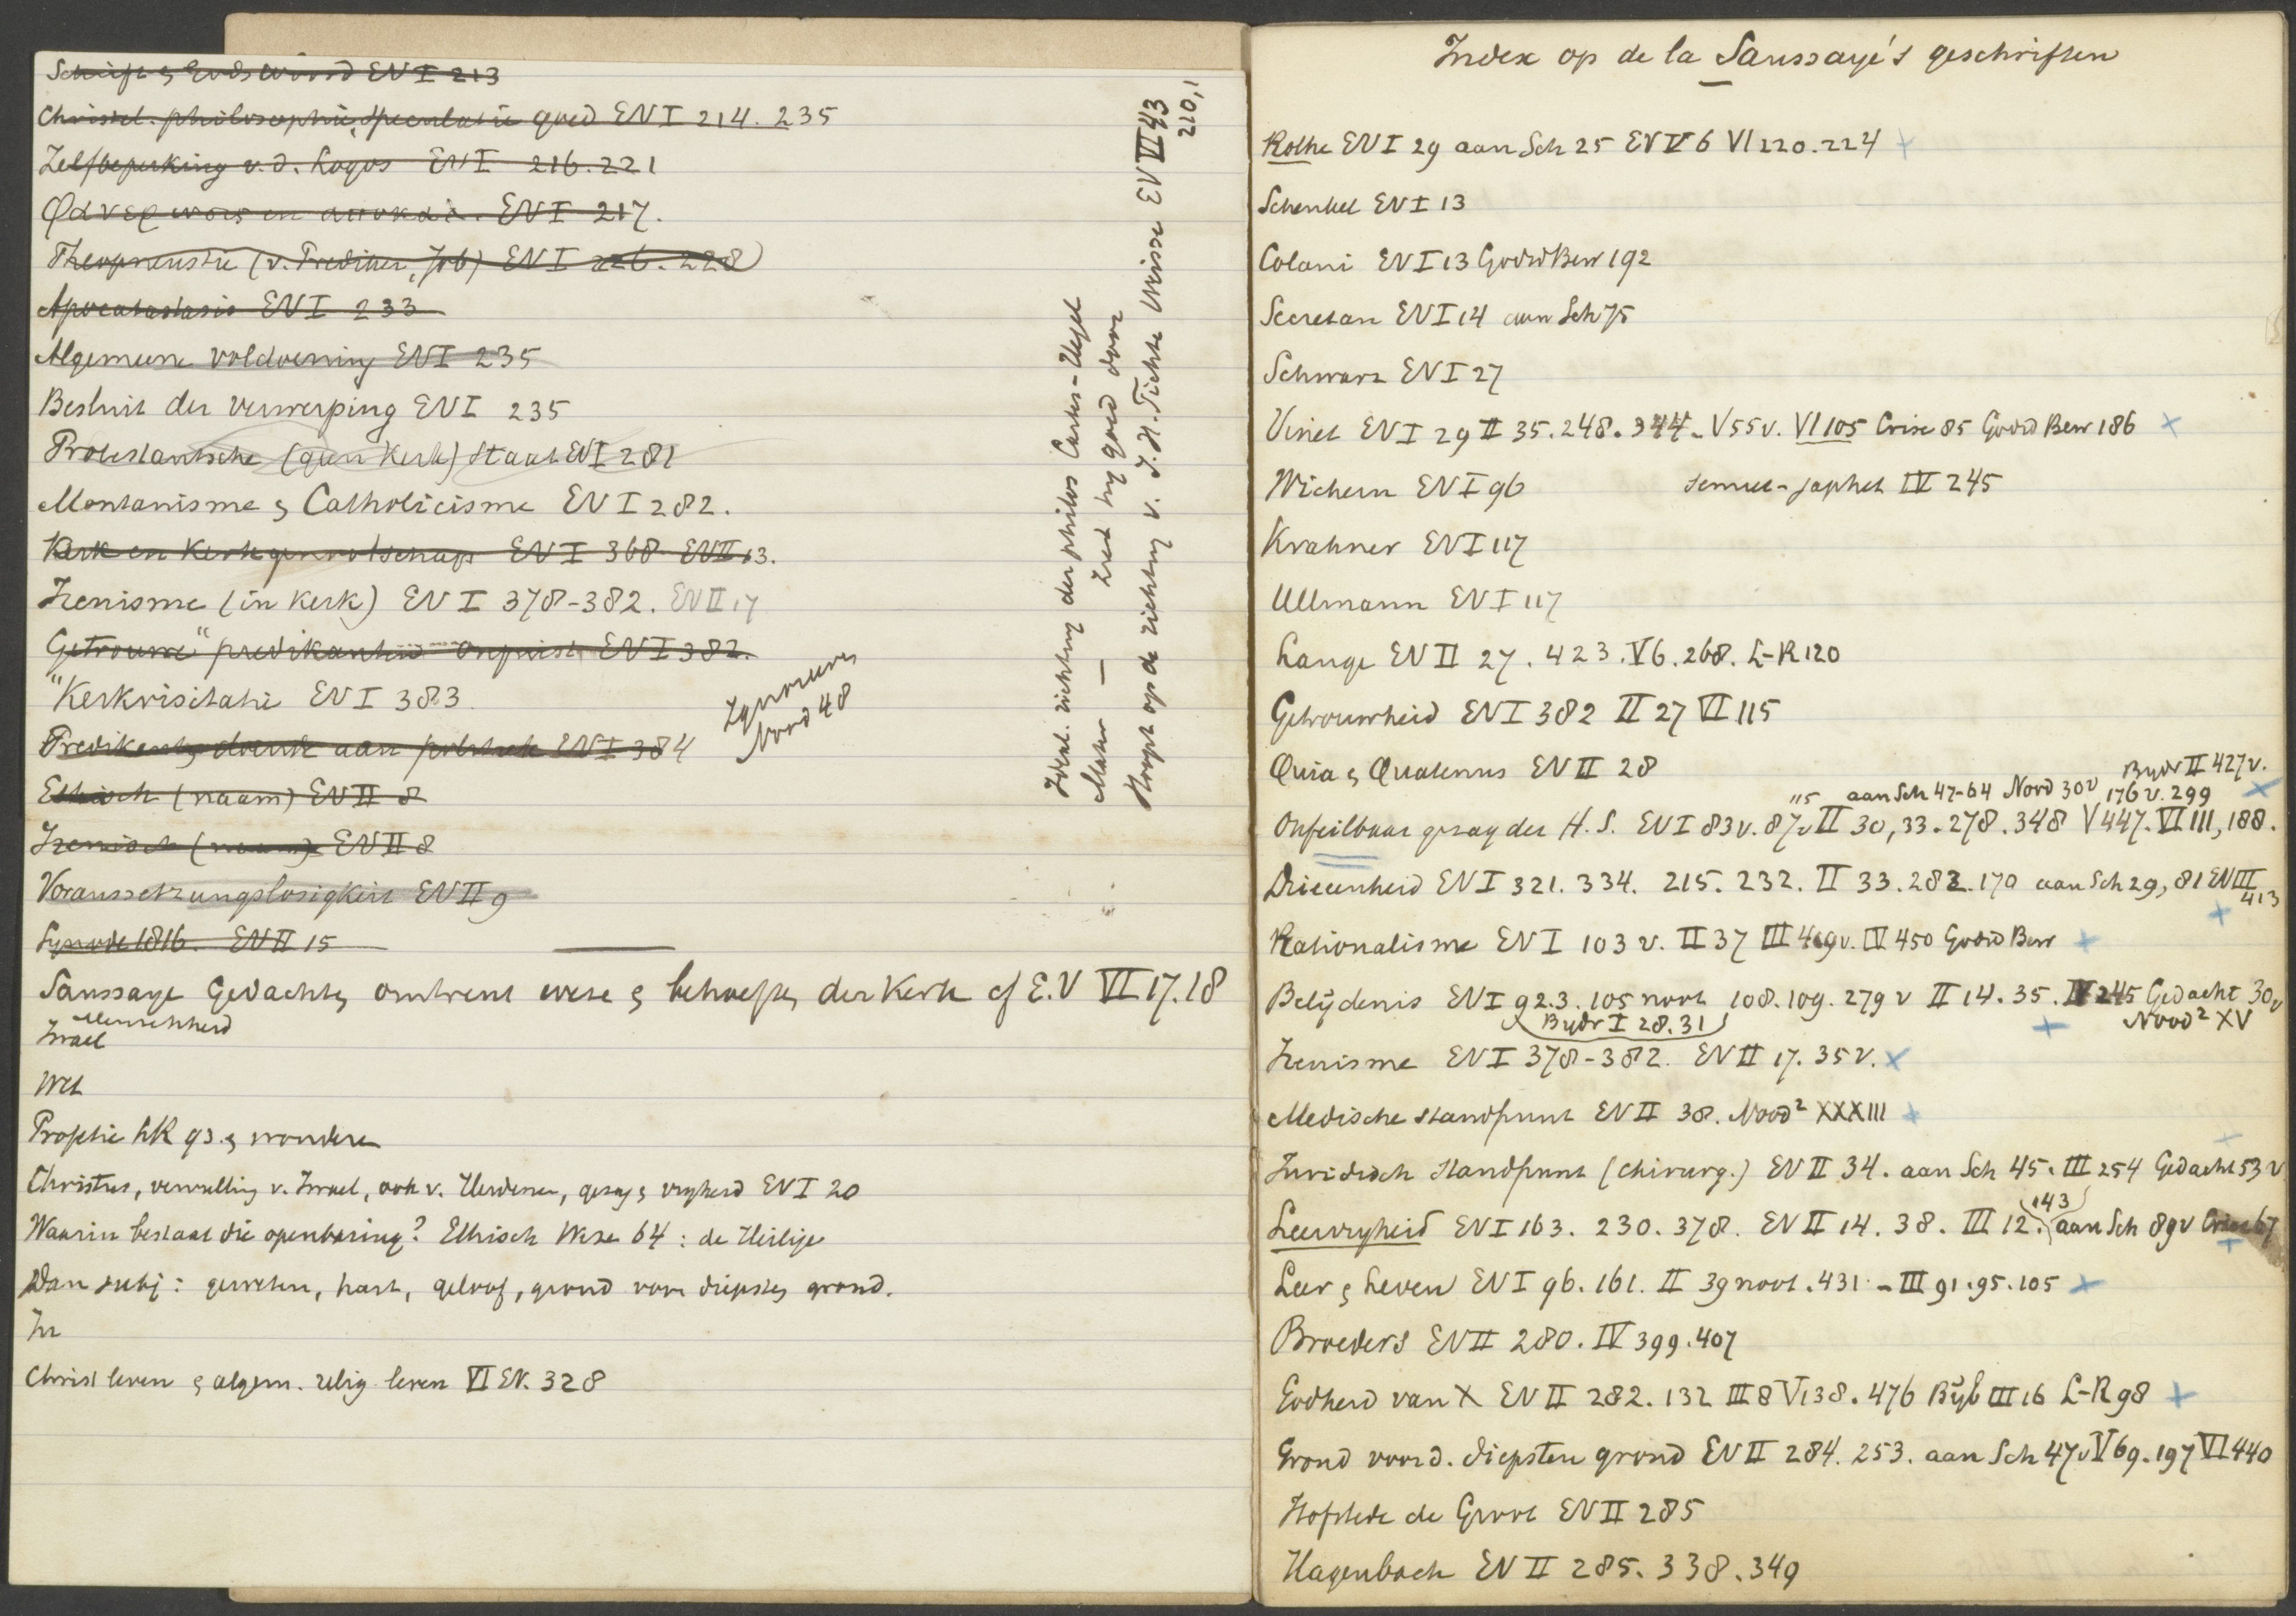 Schrift & Gods woord EV I 213
Christel. philosophie, speculatie goed EV I 214. 235
Zelfbeperking v. d. Logos EV I 216. 221
EV I 217.
Theopneustie (v. Prediker, Job) EV I 226. 228
Apocatastasis EV I 233
Algemeene voldoening EV I 235
Besluit der verwerping EV I 235
Protestantsche (geen Kerk) Staat EV I 281
Montanisme & Catholicisme EV I 282.
Kerk en Kerkgenootschap EV I 368 EV II 13.
Irenisme (in Kerk) EV I 378-382. EV II 17
Getrouwe" predikanten onjuist EV I 382.
"Kerkvisitatie EV I 383.
Predikant doende aan politiek EV I 384
Ethisch (naam) EV II 8
Irenisch (naam) EV II 8
Voraussetzungslosigkeit EV II 9
Synode 1816. EV II 15
Ignoreeren
Nood 48
Ideal. richting der philos Cartes-Hegel
Mater — door
Hoopt op de richting v. J.H. Fichte Weisse EV III 43
210,1
Saussaye Gedachten omtrent wezen & behoeften der Kerk cf E.V VI 17.18
Menschheid
Israel
Wet
Profetie HK 93. & wonderen
Christus, vervulling v. Israel, ook v. Heidenen, gezag & vrijheid EV I 20
Waarin bestaat die openbaring? Ethisch Weze 64: de Heilige
Dan subj: geweten, hart, geloof, grond voor diepsten grond.
In
Christ leven & algem. relig leven VI EV. 328
Index op de la Saussaye's geschriften
Rothe EV I 29 aan Sch 25 EV V 6 VI 220. 224 +
Schenkel EV I 13
Colani EV I 13 Godsd Bew 192
Secretan EV I 14 aan Sch 75
Schwarz EV I 27
Vinet EV I 29 II 35. 248. 344. V 55 v. VI 105 Crise 85 Godsd Bew 186 ×
Wichern EV I 96 Semiet-Japhet IV 245
Krahner EV I 117
Ullmann EV I 117
Lange EV II 27. 423. V 6. 268. L-R 120
Getrouwheid EV I 382 II 27 VI 115
Quia & Quatenus EV II 28
Bijdr II 427 v.
115 aan Sch 47-64 Nood 30 v 176 v. 299 ×
Onfeilbaar gezag der H. S. EV I 83 v. 87 v II 30, 33. 278. 348 V 447. VI 111, 188.
Drieeenheid EV I 321. 334. 215. 232. II 33. 282. 170 aan Sch 29, 81 EV III
413
Rationalisme EV I 103 v. II 37 III 469 v. IV 450 Godsd Bew +
Belijdenis EV I 92.3. 105 noot 108. 109. 279 v II 14. 35. IV 245 Gedacht 30 v
Bijdr I 28. 31 + Nood² XV
Irenisme EV I 378-382. EV II 17. 35 v. ×
Medische standpunt EV II 38. Nood² XXXIII +
Juridisch standpunt (chirurg.) EV II 34. aan Sch 45. III 254 Gedacht 53 v
143
Leervrijheid EV I 163. 230. 378. EV II 14. 38. III 12. aan Sch 89 v Crise 67
Leer & Leven EV I 96. 161. II 39 noot. 431 - III 91. 95. 105 +
Broeders EV II 280. IV 399. 407
Godheid van X EV II 282. 132 III 8 V 138. 476 Bijb III 16 L-R 98 +
Grond voor d. diepsten grond EV II 284. 253. aan Sch 47 v V 69. 197 VI 440
Hofstede de Groot EV II 285
Hagenbach EV II 285. 338. 349